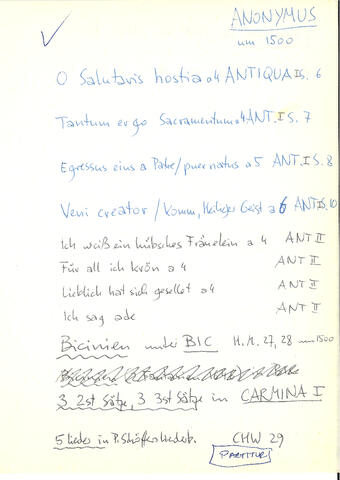 ANONYMUS
um 1500
O Salutaris hostia a4 ANTIQUA I S. 6
Tantum ergo Sacramentum a4 ANT. I S. 7
Egressus eius a Patre/puer natus a5 ANT. I S. 8
Veni creator / Komm, Heiliger Geist a 6 ANT I S. 10
Ich weiß ein hübsches Fräuelein a 4 ANT II
Für all ich krön a 4 ANT II
Lieblich hat sich gesellet a4 ANT II
Ich sag ade ANT II
Bicinien unter BIC H.M. 27, 28 um 1500
3 2st Sätze, 3 3st Sätze in CARMINA I
5 lieder in P. Schöffers liederb. CHW 29
PARTITUR